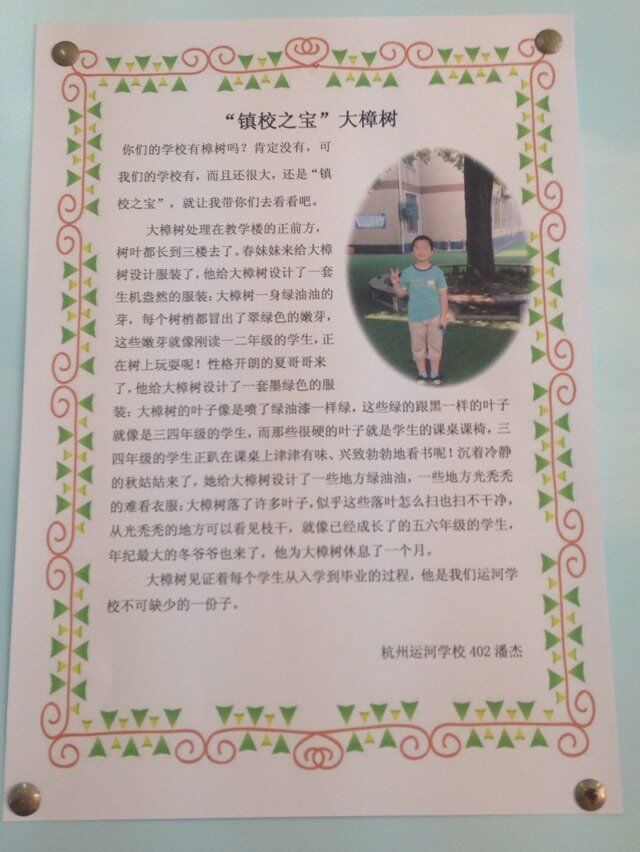 “镇校之宝”大樟树
你们的学校有樟树吗？肯定没有，可
我们的学校有，而且还很大，还是“镇
校之宝”，就让我带你们去看看吧。
大樟树处理在教学楼的正前方，
树叶都长到三楼去了。春妹妹来给大樟
树设计服装了，他给大樟树设计了一套
生机盎然的服装：大樟树一身绿油油的
芽，每个树梢都冒出了翠绿色的嫩芽，
这些嫩芽就像刚读一二年级的学生，正
在树上玩耍呢！性格开朗的夏哥哥来
了，他给大樟树设计了一套墨绿色的服
装：大樟树的叶子像是喷了绿油漆一样绿，这些绿的跟黑一样的叶子
就像是三四年级的学生，而那些很硬的叶子就是学生的课桌课椅，三
四年级的学生正趴在课桌上津津有味、兴致勃勃地看书呢！沉着冷静
的秋姑姑来了，她给大樟树设计了一些地方绿油油，一些地方光秃秃
的难看衣服：大樟树落了许多叶子，似乎这些落叶怎么扫也扫不干净，
从光秃秃的地方可以看见枝干，就像已经成长了的五六年级的学生，
年纪最大的冬爷爷也来了，他为大樟树休息了一个月。
大樟树见证着每个学生从入学到毕业的过程，他是我们运河学
校不可缺少的一份子。
杭州运河学校 402 潘杰